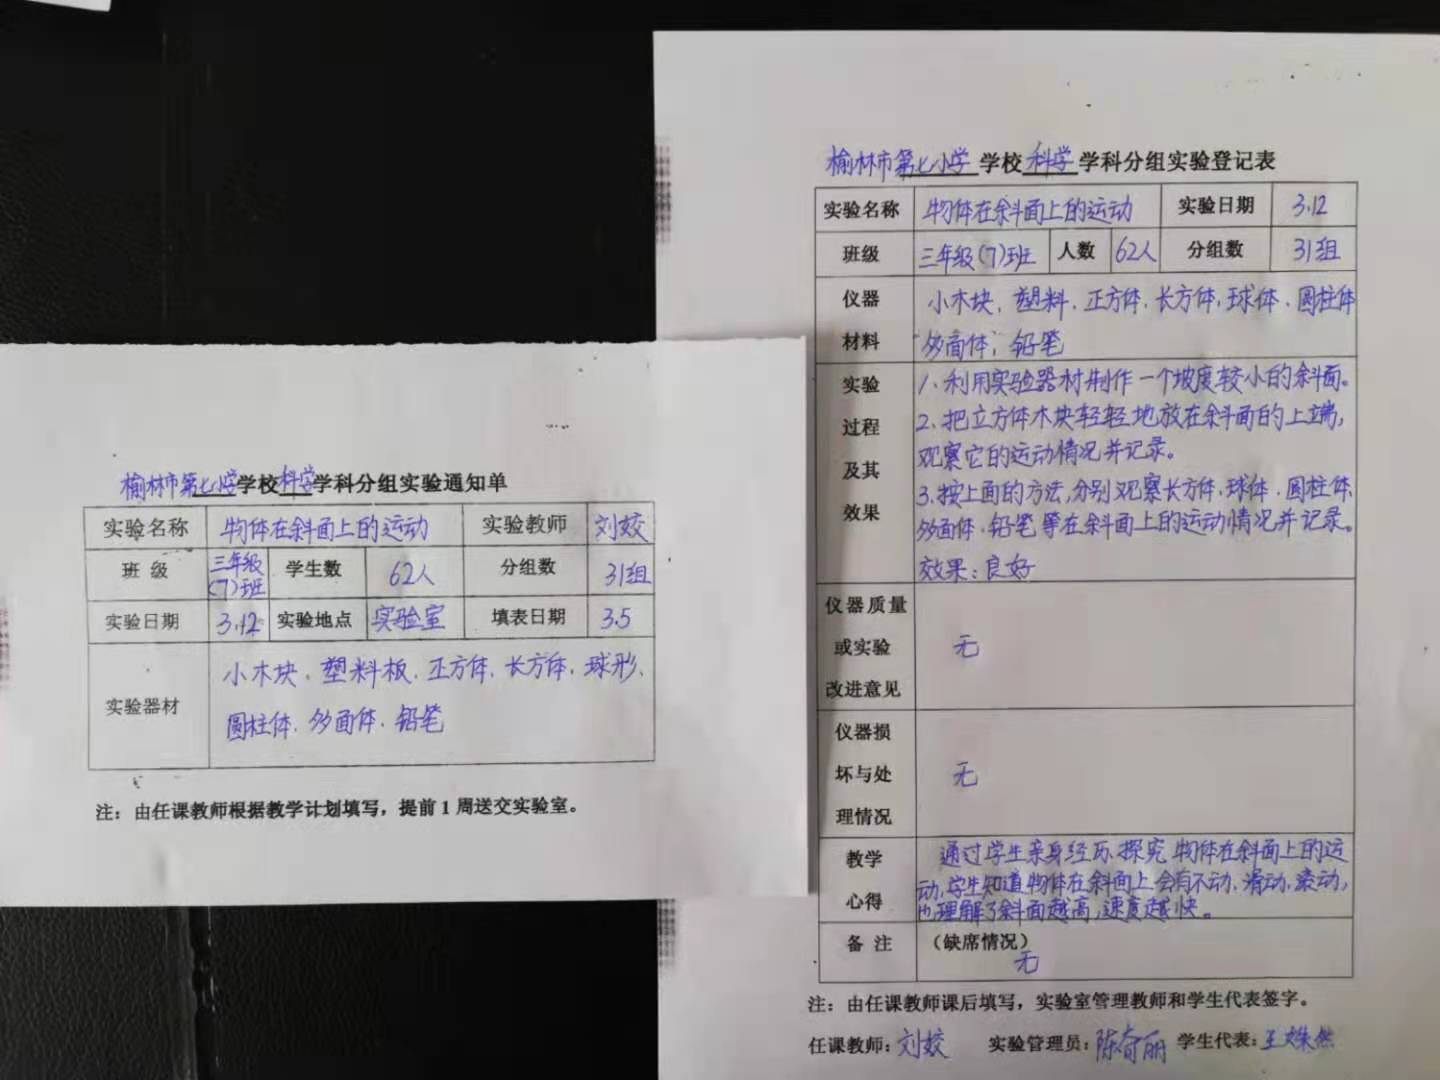 榆林市第七小学学校科学学科分组实验通知单
实验名称 物体在斜面上的运动 实验教师 刘姣
班级 三年级(7)班 学生数 62人 分组数 31组
实验日期 3.12 实验地点 实验室 填表日期 3.5
实验器材 小木块、塑料板、正方体、长方体、球形、
圆柱体、多面体、铅笔
注：由任课教师根据教学计划填写，提前1周送交实验室。
榆林市第七小学学校科学学科分组实验登记表
实验名称 物体在斜面上的运动 实验日期 3.12
班级 三年级(7)班 人数 62人 分组数 31组
仪器材料 小木块、塑料、正方体、长方体、球体、圆柱体
多面体、铅笔
实验过程及其效果 1、利用实验器材制作一个坡度较小的斜面。
2、把立方体木块轻轻地放在斜面的上端，
观察它的运动情况并记录。
3、按上面的方法，分别观察长方体、球体、圆柱体、
多面体、铅笔等在斜面上的运动情况并记录。
效果：良好
仪器质量或实验改进意见 无
仪器损坏与处理情况 无
教学心得 通过学生亲身经历、探究物体在斜面上的运
动，学生知道物体在斜面上会有不动、滑动、滚动，
也理解了斜面越高，速度越快。
备注 （缺席情况）
无
注：由任课教师课后填写，实验室管理教师和学生代表签字。
任课教师：刘姣 实验管理员：陈奇丽 学生代表：王姝然